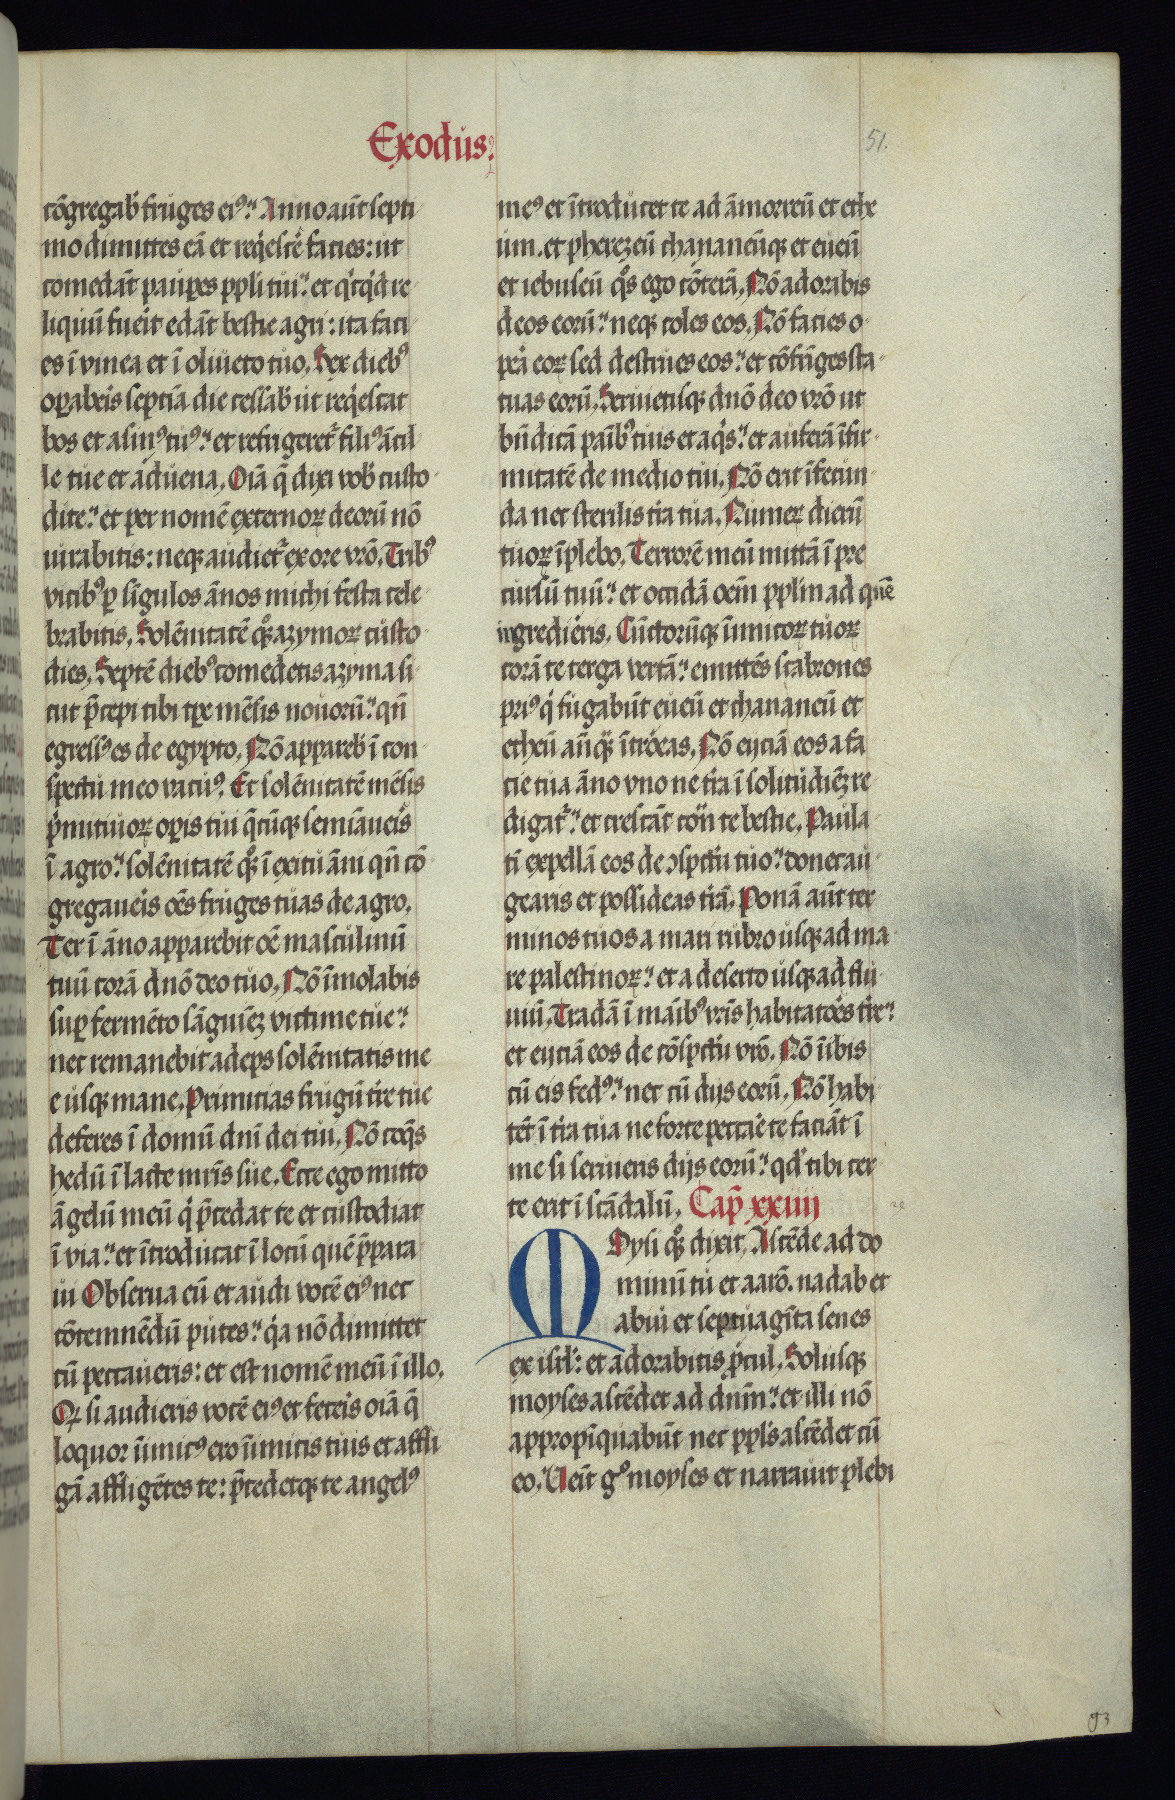 Exodus.
51.
cōgregab̄ fruges eiꝰ. Anno aūt septi
mo dimittes eā et req̇escē facies: ut
comedāt paupes ppli tui. et q̇cq̇d re
liquiū fuerit edāt bestie agri: ita faci
es ī vinea et ī oliueto tuo. Sex diebꝰ
opaberis septīa die cessab̄ ut req̇escat
bos et asinꝰ tuꝰ. et refrigeret̄ filiꝰ ācil
le tue et aduena. Oīa q̄ dixi vob̄ custo
dite. et per nomē externoꝝ deorū nō
iurabitis: neqꝫ audiet̄ ex ore vrō. Tribꝰ
vicibꝰ ꝑ sīgulos ānos michi festa cele
brabitis. Solēnitatē qͦꝫ azymoꝝ custo
dies. Septē diebꝰ comedetis azyma si
cut p̄cepi tibi tꝑe mēsis nouorū. qn̄
egressꝰ es de egypto. Nō appareb̄ ī con
spectu meo vacuꝰ. Et solēnitatē mēsis
p̄mitiuoꝝ oꝑis tui q̄cūqꝫ semīaueis
ī agro. solēnitatē qͦꝫ ī exitu āni qn̄ cō
gregaueis oēs fruges tuas de agro.
Ter ī āno apparebit oē masculinū
tuū corā dn̄o deo tuo. Nō īmolabis
suꝑ fermēto sāguinē victime tue.
nec remanebit adeps solēnitatis me
e usqꝫ mane. Primitias frugū tr̄e tue
deferes ī domū dn̄i dei tui. Nō coq̄s
hedū ī lacte mr̄is sue. Ecce ego mitto
āgelū meū q̇ p̄cedat te et custodiat
ī via. et ītroducat ī locū quē p̄para
ui Obserua eū et audi vocē eiꝰ nec
cōtemnēdū putes. q̇a nō dimittet
cū peccaueris: et est nomē meū ī illo.
Qꝫ si audieris vocē eiꝰ et feceis oīa q̄
loquor īimicꝰ ero īimicis tuis et affli
gā affligētes te: p̄cedetqꝫ te angelꝰ
meꝰ et ītroducet te ad āmorreū et ethe
um. et pherezeū chananeūqꝫ et eueū
et iebuseū qͦs ego cōterā. Nō adorabis
deos eorū. neqꝫ coles eos. Nō facies o
ꝑa eoꝝ sed destrues eos. et cōfrīges sta
tuas eorū. Seruietisqꝫ dn̄o deo vrō ut
bn̄dicā paībꝰ tuis et aq̇s. et auferā īfir
mitatē de medio tui. Nō erit īfecun
da nec sterilis tr̄a tua. Numeꝝ dierū
tuoꝝ īplebo. Terrorē meū mittā ī pre
cursū tuū. et occidā oēm pplm ad quē
ingredieris. Cūctorūqꝫ īimicoꝝ tuoꝝ
corā te terga vertā. emittēs scabrones
priꝰ q̇ fugabūt eueū et chananeū et
etheū an̄qͣꝫ ītroeas. Nō eijciā eos a fa
cie tua āno vno ne tr̄a ī solitudiēꝫ re
digat̄. et crescāt cōͣ te bestie. Paula
tī expellā eos de ɔspectu tuo. donec au
gearis et possideas tr̄ā. Ponā aūt ter
minos tuos a mari rubro usqꝫ ad ma
re palestinoꝝ. et a deserto usqꝫ ad flu
uiū. Tradā ī maībꝰ vrīs habitatoēs tr̄e.
et eijciā eos de cōspectu vrō. Nō īibis
cū eis fedꝰ. nec cū dijs eorū. Nō habi
tēt ī tr̄a tua ne forte peccae te faciāt ī
me si seruieris dijs eorū. qd̄ tibi cer
te erit ī scādalū. Cap̄ xxiiij
MOysi qͦꝫ dixit. Ascēde ad do
minū tu et aarō. nadab et
abiu et septuagīta senes
ex isrl̄: et adorabitis p̄cul. Solusqꝫ
moyses ascēdet ad dnm̄. et illi nō
appropīquabūt nec ppl's ascēdet cū
eo. Ueīt gͦ moyses et narrauit plebi
93